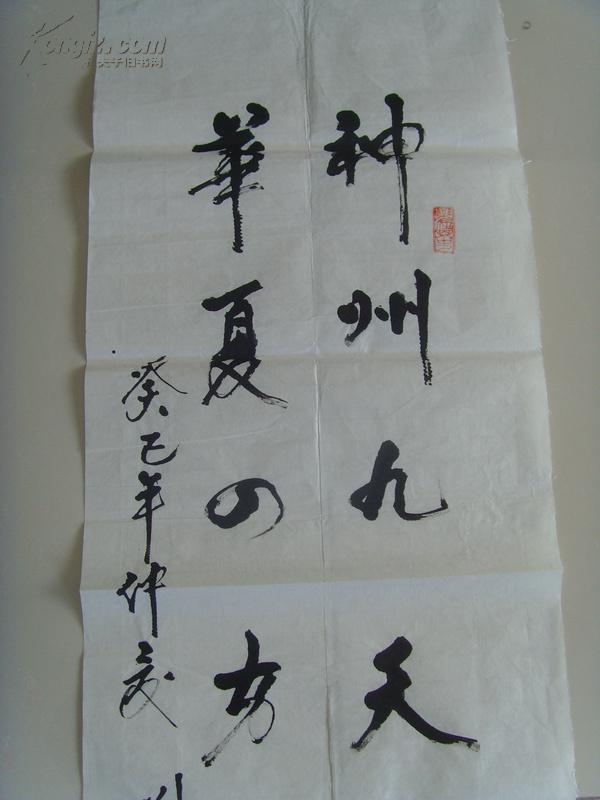 神州九天
華夏四方
癸巳年仲夏
kongfz.com
孔夫子旧书网